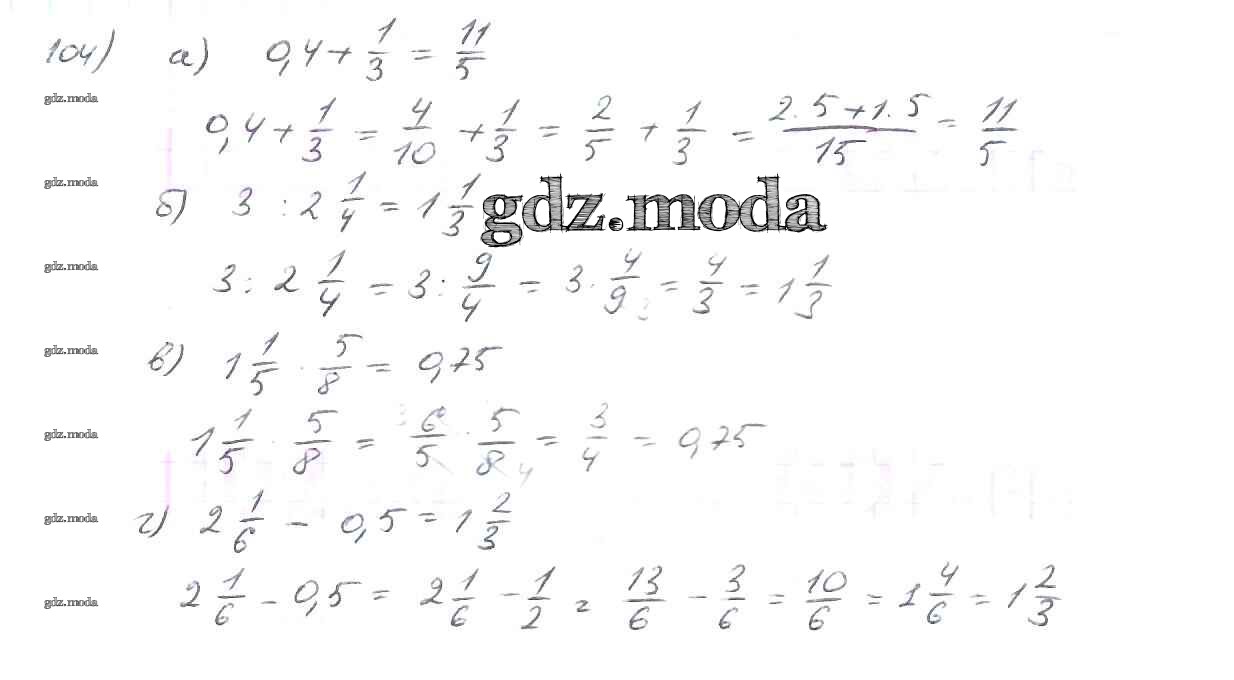 104) а) 0,4 + 1/3 = 11/5
gdz.moda
0,4 + 1/3 = 4/10 + 1/3 = 2/5 + 1/3 = (2·5+1·5)/15 = 11/5
gdz.moda
б) 3 : 2 1/4 = 1 1/3 gdz.moda
gdz.moda
3 : 2 1/4 = 3 : 9/4 = 3 · 4/9 3 = 4/3 = 1 1/3
gdz.moda
в) 1 1/5 · 5/8 = 0,75
gdz.moda
1 1/5 · 5/8 = 3 6/5 · 5/8 4 = 3/4 = 0,75
gdz.moda
г) 2 1/6 - 0,5 = 1 2/3
gdz.moda
2 1/6 - 0,5 = 2 1/6 - 1/2 = 13/6 - 3/6 = 10/6 = 1 4/6 = 1 2/3